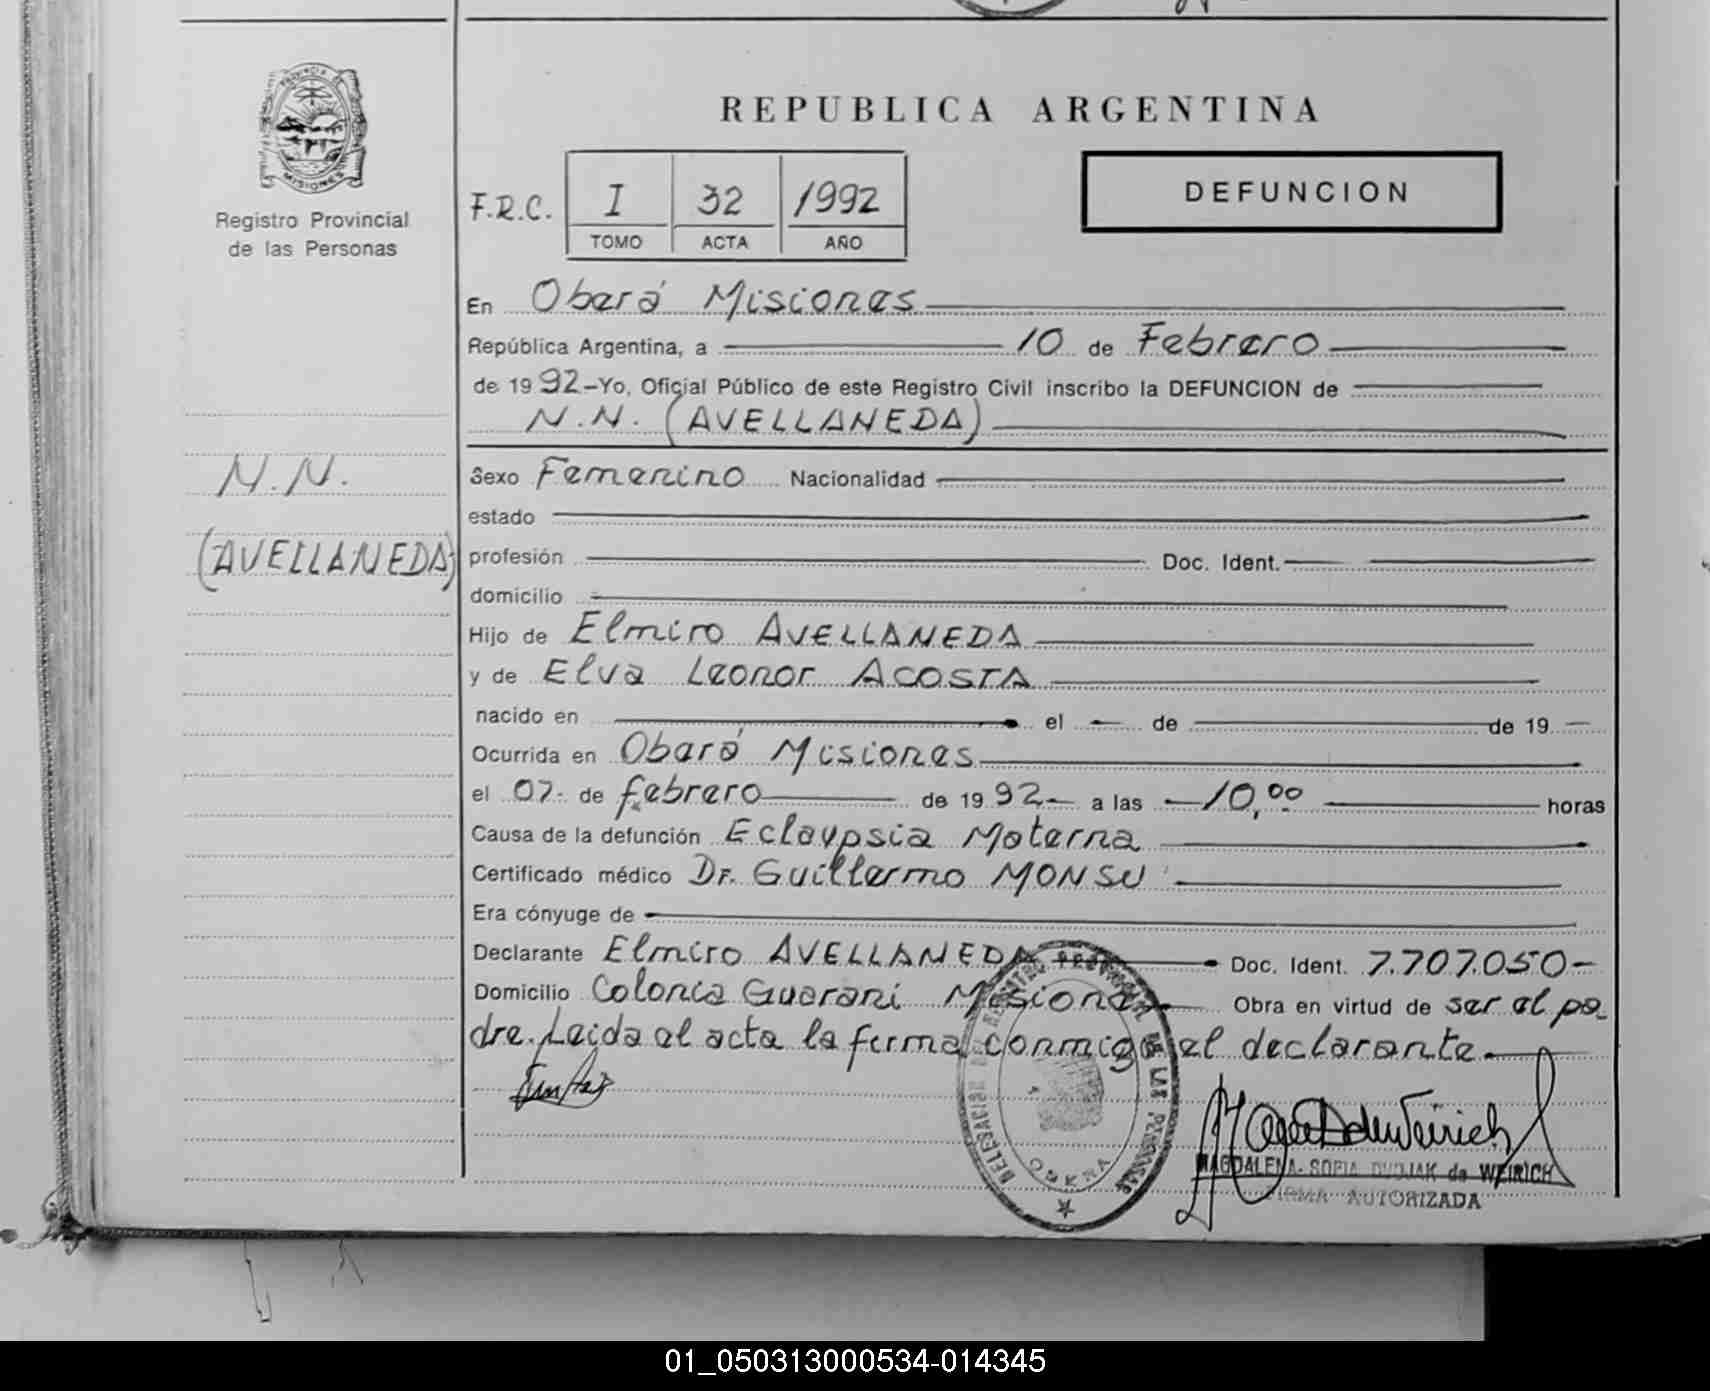 REPUBLICA ARGENTINA
PROVINCIA DE
MISIONES
Registro Provincial
de las Personas
DEFUNCION
F.R.C. I 32 1992
TOMO ACTA AÑO
En Oberá Misiones
República Argentina, a 10 de Febrero
de 19 92-Yo, Oficial Público de este Registro Civil inscribo la DEFUNCION de
N.N. (AVELLANEDA)
N.N.
(AVELLANEDA)
Sexo Femenino Nacionalidad
estado
profesión Doc. Ident.
domicilio
Hijo de Elmiro AVELLANEDA
y de Elva Leonor ACOSTA
nacido en el — de de 19 —
Ocurrida en Oberá Misiones
el 07- de febrero de 19 92- a las —10,00 horas
Causa de la defunción Eclaupsia Materna
Certificado médico Dr. Guillermo MONSU
Era cónyuge de
Declarante Elmiro AVELLANEDA Doc. Ident. 7.707.050-
Domicilio Colonia Guarani Misiones Obra en virtud de ser el pa
dre. Leida el acta la firma conmigo el declarante.
DELEGACION DEL REGISTRO PROVINCIAL DE LAS PERSONAS
OBERA
MAGDALENA SOFIA DVOJAK de WEIRICH
FIRMA AUTORIZADA
01_050313000534-014345